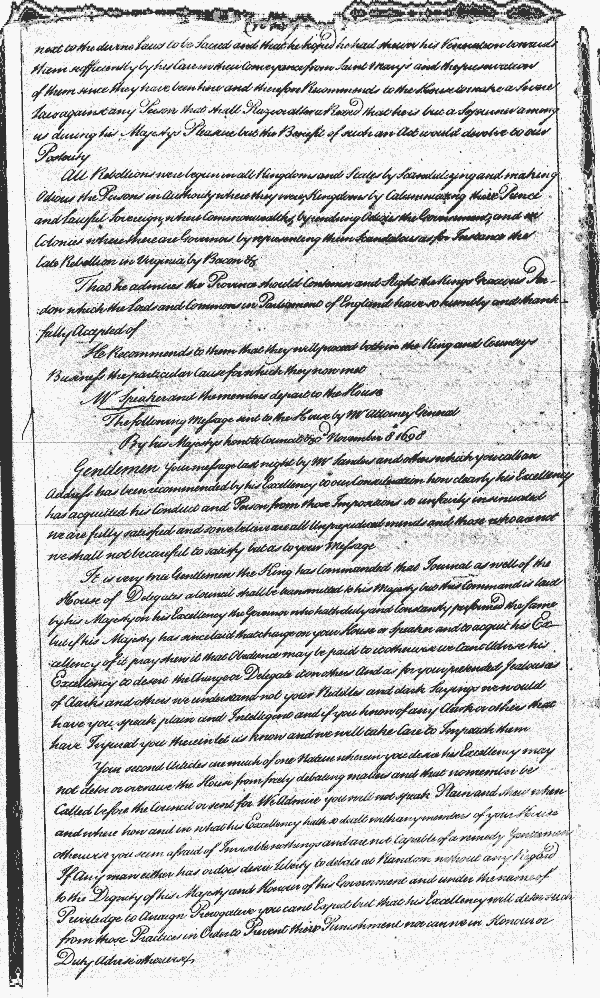 next to the divine Laws to be Sacred and that he hoped he had shewn his Veneration towards
them sufficiently by his Care in their Conveyance from Saint Marys and the preservation
of them since they have been here and therefore Recommends to the House to make a Severe
Law against any Person that shall Raze or alter a Record that he is but a Sojourner among
us during his Majestys Pleasure but the Benefit of such an Act would devolve to our
Posterity
All Rebellions were begun in all Kingdoms and States by Scandalizing and making
Odious the Persons in Authority where they were Kingdoms by Calumniating their Prince
and lawful Sovereign, where Commonwealths by rendring Odious the Government, and in
Colonies where there are Governors by representing them Scandalous as for Instance the
late Rebellion in Virginia by Bacon &c
That he admires the Province should Contemn and Slight the Kings Gracious Par-
don which the Lords and Commons in Parliament of England have so humbly and thank-
fully Accepted of
He Recommends to them that they will proceed both in the King and Countrys
Business the particular Cause for which they now met
Mr Speaker and the members depart to the House
The following Message sent to the House by Mr Attorney General
By his Majestys honble Council &c November 8 1698
Gentlemen Your message last night by Mr Sanders and others which you call an
Address has been recommended by his Excellency to our Consideration how clearly his Excellency
has acquitted his Conduct and Person from those Impositions so unfairly insinuated
we are fully satisfied and so we believe are all Unprejudiced minds and those who are not
we shall not be careful to satisfy but as to your Message
It is very true Gentlemen the King has Commanded that Journal as well of the
House of Delegates as Council shall be transmitted to his Majesty but this Command is laid
by his Majesty on his Excellency the Governor who hath duly and Constantly performed the same
but if his Majesty has since laid that charge on your House or Speaker and to acquit his Ex-
cellency of it pray shew it that Obedience may be paid to it otherwise we Cant Advise his
Excellency to desert the Charge or Delegate it on others And as for your pretended Jealousies
of Clarks and others we understand not your Riddles and dark Sayings we would
have you speak plain and Intelligent and if you know of any Clark or others that
have Injured you therein let us know and we will take Care to Impeach them
Your second Articles are much of one Nature wherein you desire his Excellency may
not deter or overawe the House from freely debating matters and that no member be
Called before the Council or sent for We Admire you will not speak Plain and shew when
and where how and in what his Excellency hath so dealt with any members of your House
otherwise you seem afraid of Invisible nothings and are not Capable of a remedy Gentlemen
If Any man either has or does desire Liberty to debate at Random without any Regard
to the Dignity of his Majesty and Honour of his Government and under the name of
Priviledge to Arraign Prerogative you cant Expect but that his Excellency will deter such
from those Practices in Order to Prevent their Punishment nor can we in Honour or
Duty Advise otherwise